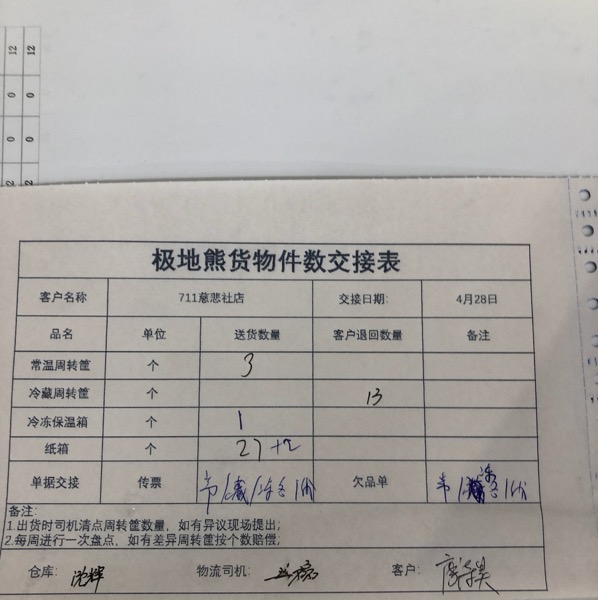 12 0 0 2
12 0 0 2
极地熊货物件数交接表
客户名称 711慈悲社店 交接日期: 4月28日
品名 单位 送货数量 客户退回数量 备注
常温周转筐 个 3
冷藏周转筐 个 13
冷冻保温箱 个 1
纸箱 个 27+2
单据交接 传票 欠品单
备注:
1.出货时司机清点周转筐数量，如有异议现场提出;
2.每周进行一次盘点，如有差异周转筐按个数赔偿;
仓库: 物流司机: 客户: